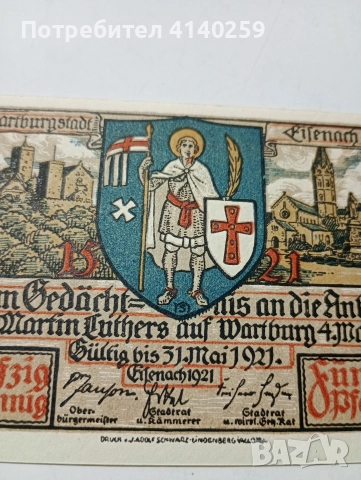 Потребител 4140259
Wartburgstadt Eisenach
15 21
m Gedächt= nis an die An
Martin Luthers auf Wartburg 4. M
Gültig bis 31. Mai 1921.
Eisenach 1921
fzig Fün
nnig Pf
Ober= Stadtrat Stadtrat
bürgermeister u. Kämmerer u. wirkl. Geh. Rat
DRUCK v. J. ADOLF SCHWARZ-LINDENBERG i/ALLGÄU
БАЗАР
bg